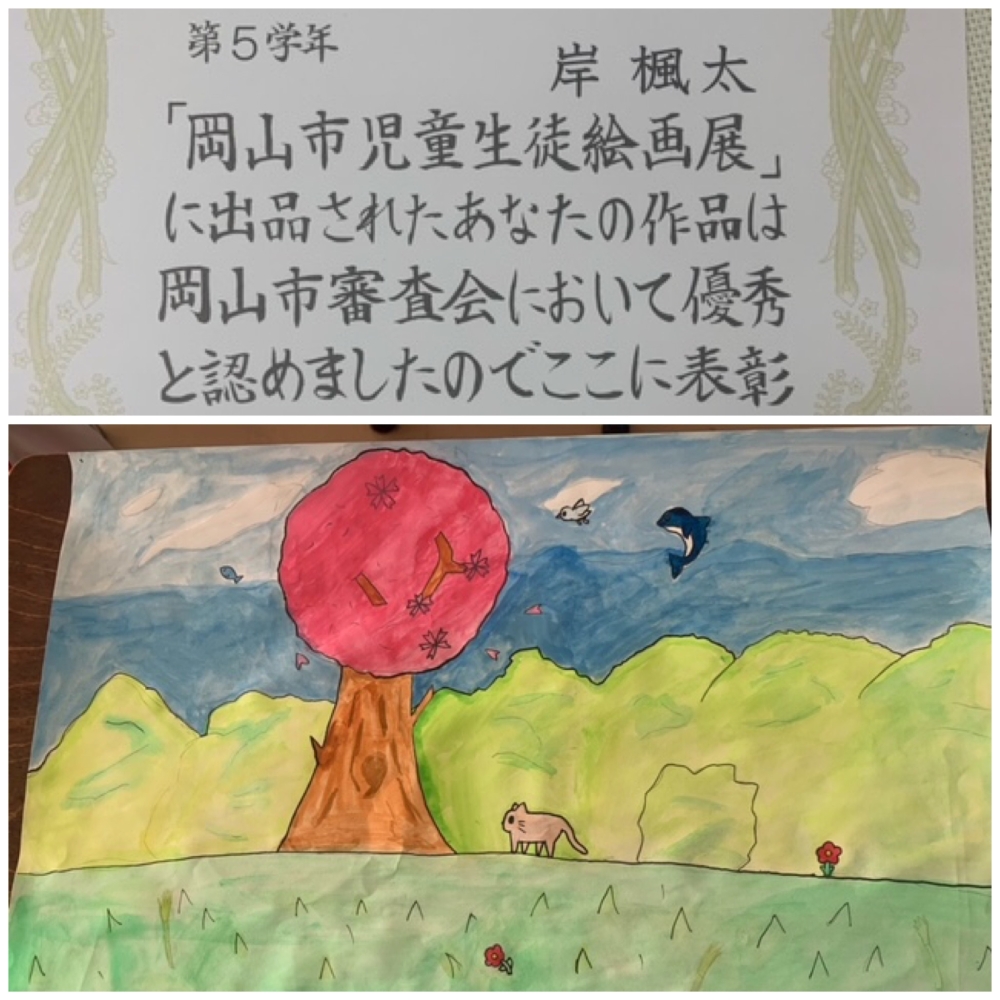 第5学年
岸 楓太
「岡山市児童生徒絵画展」
に出品されたあなたの作品は
岡山市審査会において優秀
と認めましたのでここに表彰